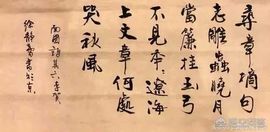 尋章摘句
老雕蟲曉月
當簾挂玉弓
不見年〻遼海
上文章何處
哭秋風
南園詩其六李賀